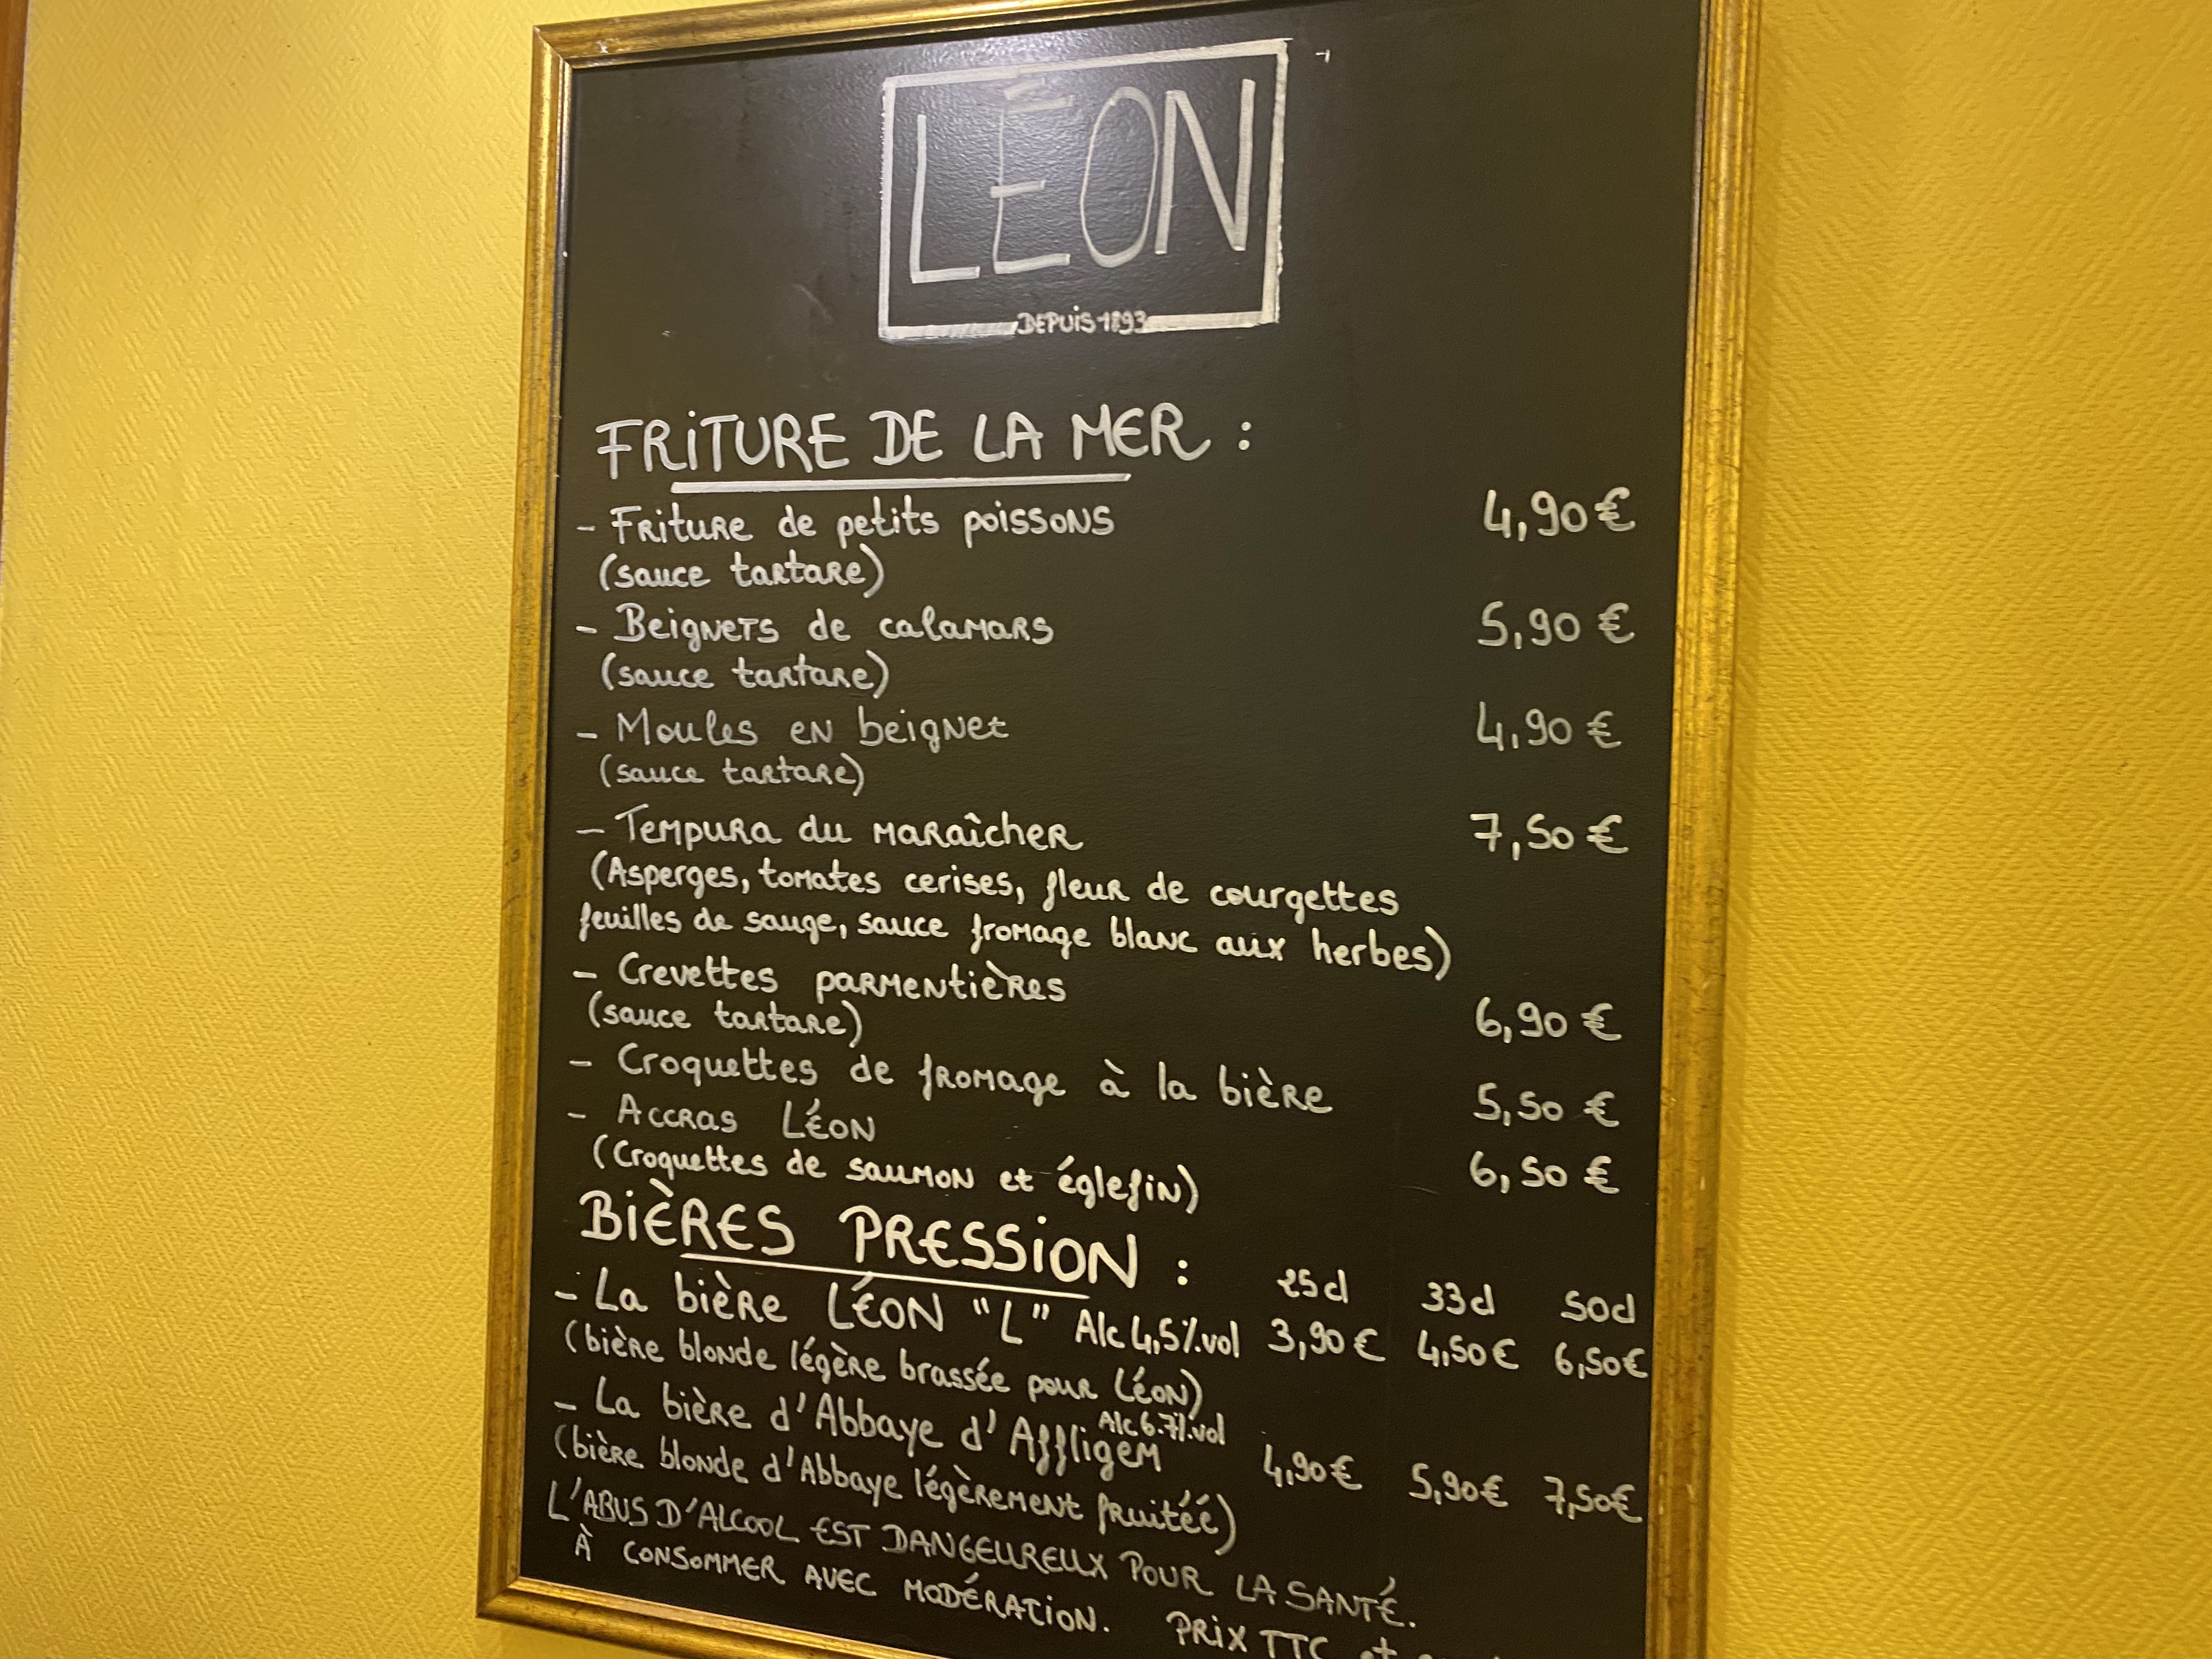 LÉON
DEPUIS 1893
FRITURE DE LA MER :
- Friture de petits poissons 4,90 €
(sauce tartare)
- Beignets de calamars 5,90 €
(sauce tartare)
- Moules en beignet 4,90 €
(sauce tartare)
- Tempura du maraîcher 7,50 €
(Asperges, tomates cerises, fleur de courgettes
feuilles de sauge, sauce fromage blanc aux herbes)
- Crevettes parmentières
(sauce tartare) 6,90 €
- Croquettes de fromage à la bière 5,50 €
- Accras LÉON
(Croquettes de saumon et églefin) 6,50 €
BIÈRES PRESSION : 25cl 33cl 50cl
- La bière LÉON "L" Alc 4,5%.vol 3,90€ 4,50€ 6,50€
(bière blonde légère brassée pour Léon)
- La bière d'Abbaye d'Affligem Alc 6.7%.vol 4,90€ 5,90€ 7,50€
(bière blonde d'Abbaye légèrement fruitéé)
L'ABUS D'ALCOOL EST DANGEUREUX POUR LA SANTÉ.
À CONSOMMER AVEC MODÉRATION. PRIX TTC et